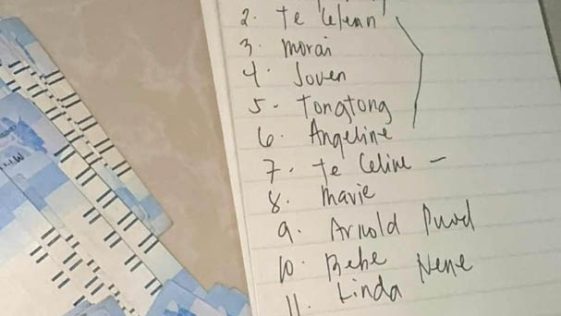 2. Te Celian
3. morai
4. Joven
5. Tongtong
6. Angeline
7. Te Celine -
8. mavie
9. Arnold
10. Bebe Nene
11. Linda